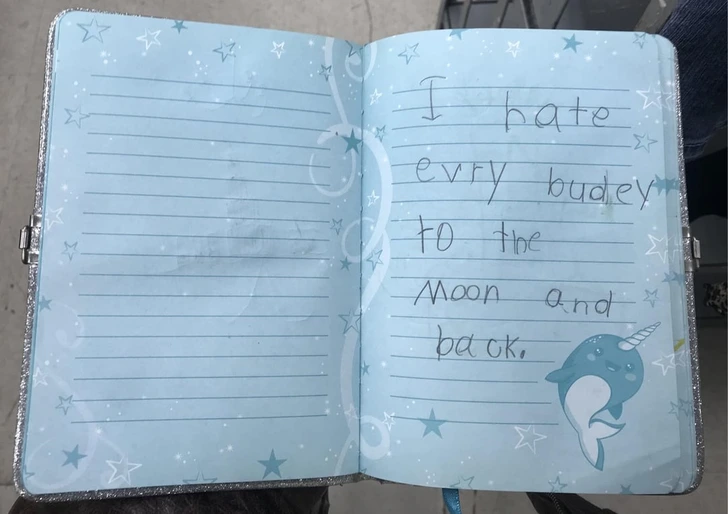 I hate
evry budey
to the
Moon and
back.